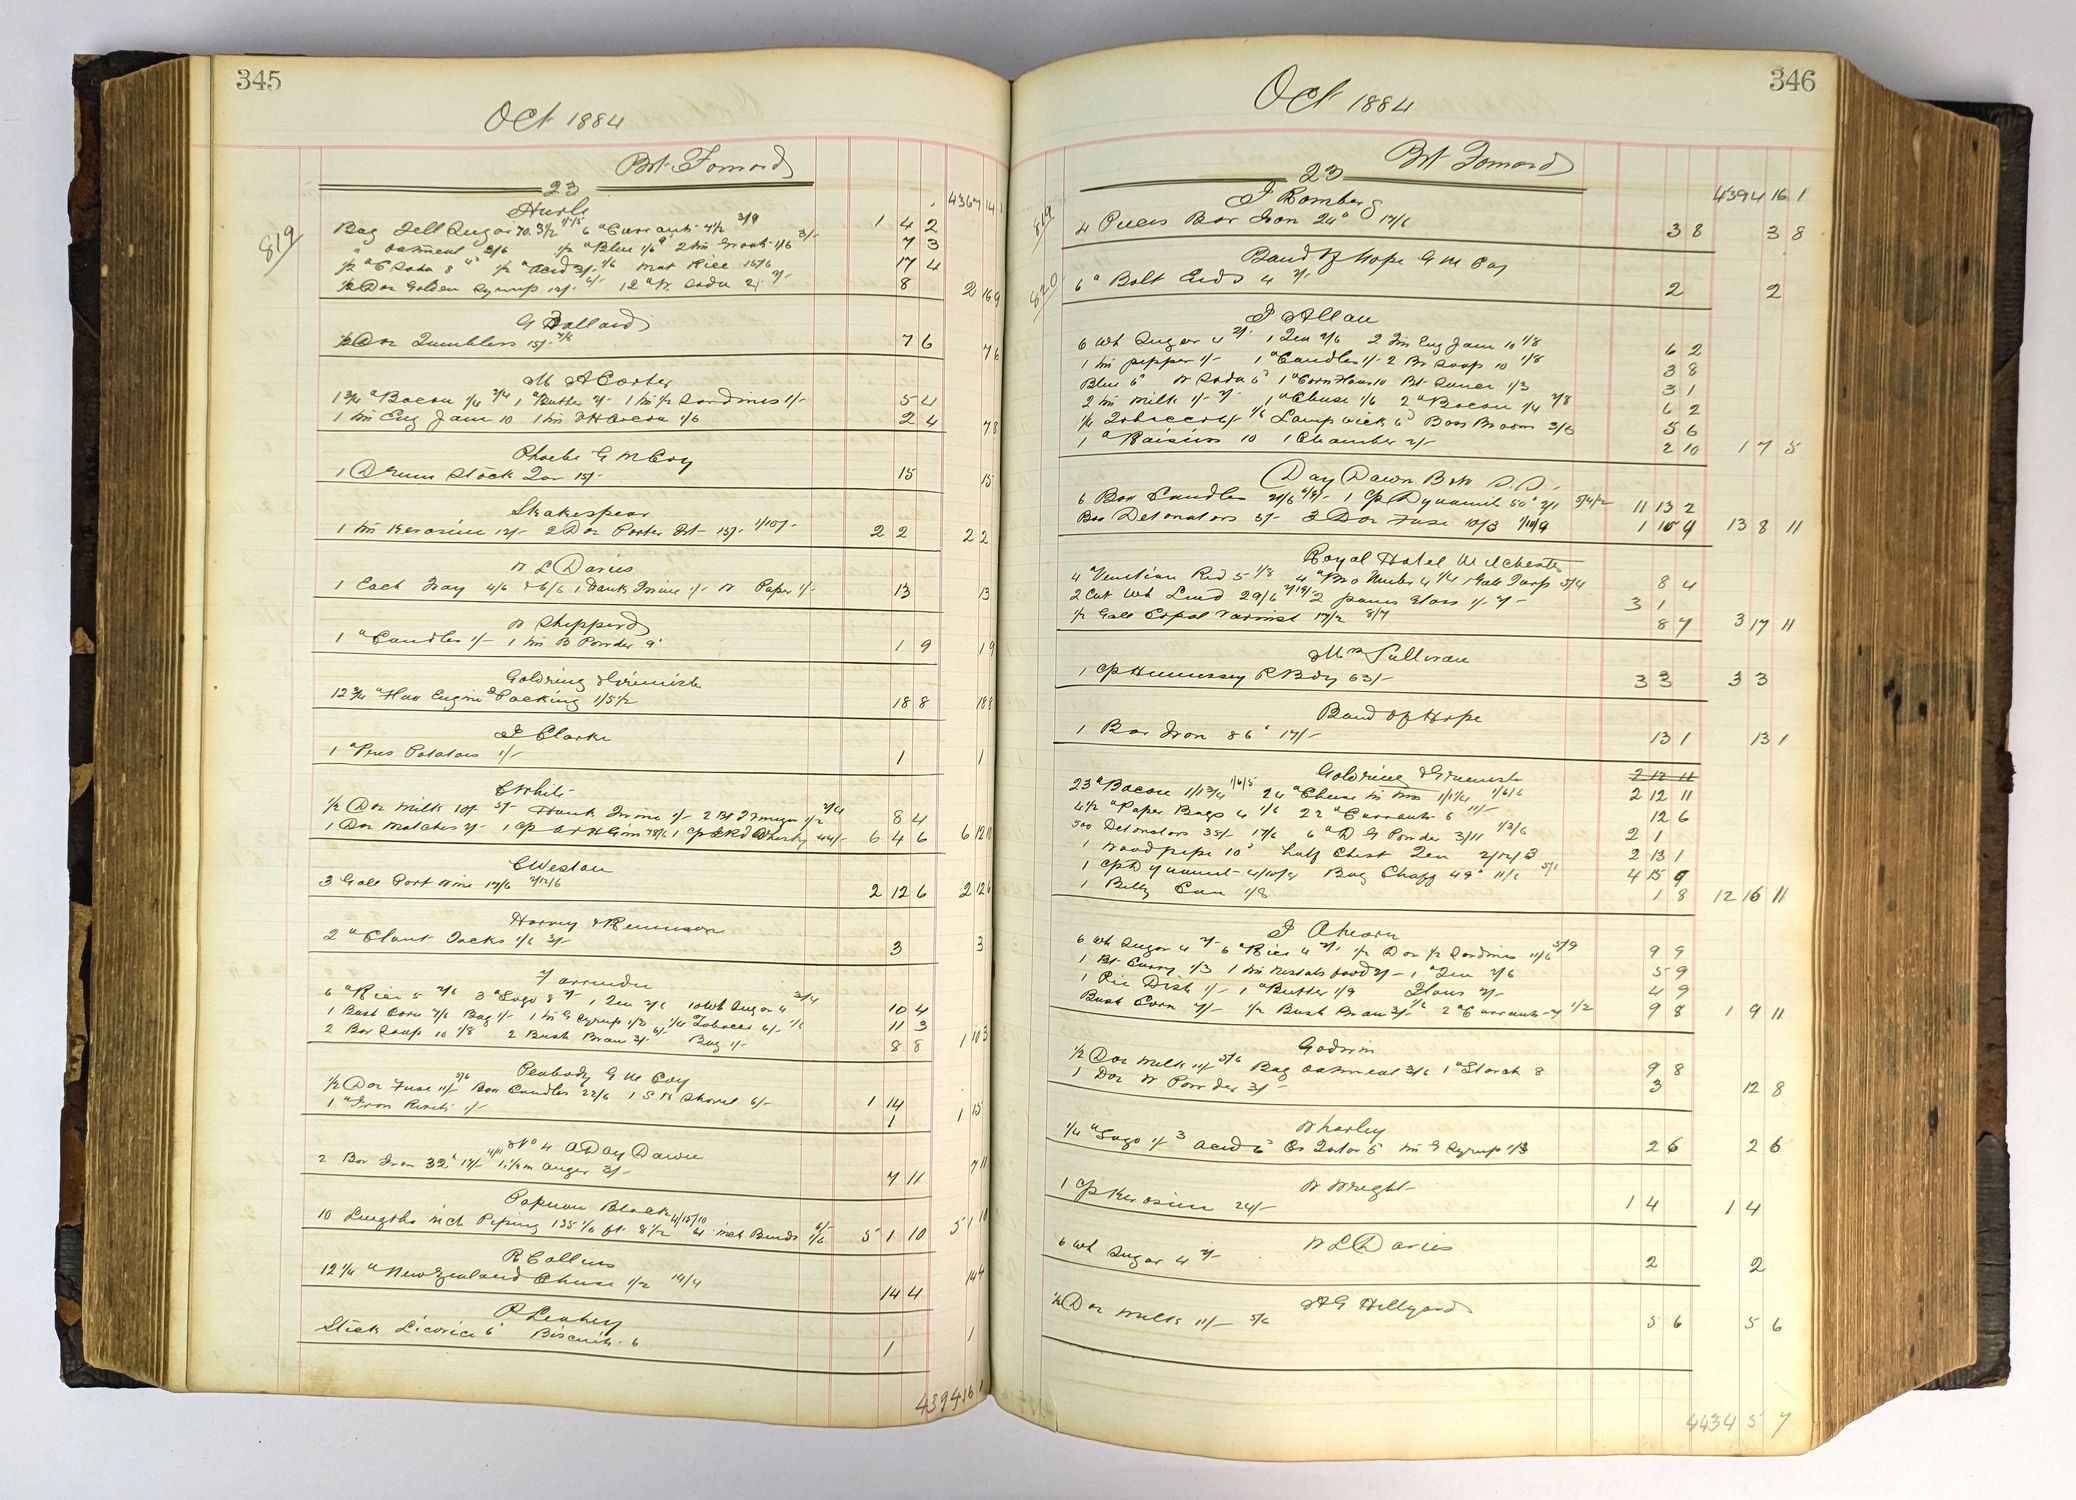 345
Oct 1884
Bt Forward
23
4367 14 1
819
Hurle
Bag Sugar 70. 3½ 6 " Currants 7½ 3/9 1 4 2
" Oatmeal 3/6 ½ " Blue 1/6 2 tin 1/6 3/- 7 3
½ " C Soda 8 4 ½ " Acid 3/- 1/6 Mat Rice 15/6 17 4
½ Doz Golden Syrup 12/- 6/- 12 " W Soda 2 2/- 8 2 16 9
G Ballard
½ Doz Tumblers 15/- 7/6 7 6 7 6
M A Carter
1¾ " Bacon 1/4 2/4 1 " Butter 2/- 1 tin ½ Sardines 1/- 5 4
1 tin Eng Jam 10 1 tin 1/6 2 4 7 8
Phoebe G M Coy
1 Drum Stock Tar 15/- 15 15
Shakespear
1 tin Kerosine 12/- 2 Doz Porter Pt 15/- 1/10/- 2 2 2 2
W L Davies
1 Each Tray 4/6 & 6/6 1 Hank Twine 1/- W Paper 1/- 13 13
W Shepperd
1 " Candles 1/- 1 tin B Powder 9 1 9 1 9
Goldring &
12¾ " Flax Engine Packing 1/5½ 18 8 18 8
J Clarke
1 " Pres Potatoes 1/- 1 1
C White
½ Doz Milk 10/- 5/- Hank Twine 1/- 2 Bt Vinegar 1/2 2/4 8 4
1 Doz Matches 2/- 1 cs Gin 75/6 1 cs Whisky 44/- 6 4 6 6 12 10
C Weston
3 Gall Port Wine 17/6 2/12/6 2 12 6 2 12 6
Harvey & Rennison
2 " Clout Tacks 1/6 3/- 3 3
Farrender
6 " Rice 5 2/6 3 " Sago 8 2/- 1 Tea 2/6 10 Wht Sugar 4 3/4 10 4
1 Bush Corn 7/6 Bag 1/- 1 tin G Syrup 1/3 ¼ Tobacco 6/- 1/6 11 3
2 Bar Soap 10 1/8 2 Bush Bran 3/- 6/- Bag 1/- 8 8 1 10 3
Peabody G M Coy
½ Doz Fuse 11/- 5/6 Box Candles 22/6 1 S H Shovel 6/- 1 14
1 " Iron Rivets 1/- 1 1 15
No 4 Day Dawn
2 Bar Iron 32 " 17/- 4/11 Auger 3/- 7 11 7 11
Papuan Block
10 Lengths inch Piping 135 1/6 ft 8½ 4/15/10 4 inch Bends 1/6 6/- 5 1 10 5 1 10
R Collins
12¼ " New Zealand Cheese 1/2 14/4 14 4 14 4
P Leahey
Stick Licorice 6 Biscuits 6 1 1
4394 16 1
346
Oct 1884
Bt Forward
23
4394 16 1
819
J Romberg
4 Pieces Bar Iron 24 " 17/6 3 8 3 8
820
Band of Hope G M Coy
6 " Bolt Ends 4 2/- 2 2
J Allan
6 Wht Sugar 4 2/- 1 Tea 2/6 2 Tin Eng Jam 10 1/8 6 2
1 tin pepper 1/- 1 " Candles 1/- 2 Br Soap 10 1/8 3 8
Blue 6 W Soda 6 1 " Corn Flour 10 Bt Sauce 1/3 3 1
2 tin Milk 1/- 2/- 1 " Cheese 1/6 2 " Bacon 1/4 2/8 6 2
¼ Tobacco 6/- 1/6 Lamp wick 6 Bass Broom 3/6 5 6
1 " Raisins 10 1 Chamber 2/- 2 10 1 7 5
Day Dawn
6 Box Candles 1 cs Dynamite 50 " 2/1 5/4/2 11 13 2
Box Detonators 5/- 3 Doz Fuse 10/3 1/10/9 1 15 9 13 8 11
Royal Hotel Milchester
4 " Venetian Red 5 1/8 4 " Bro Umber 4 1/4 1 Gall Turps 5/4 8 4
2 Cwt Wht Lead 29/6 2/19/- 2 panes Glass 1/- 2/- 3 1
½ Gall Copal Varnish 17/2 8/7 8 7 3 17 11
Mrs Sullivan
1 cs Hennessey P Bdy 63/- 3 3 3 3
Band of Hope
1 Bar Iron 86 " 17/- 13 1 13 1
Goldring & 2 12 11
23 " Bacon 1/1¾ 1/6/5 24 " Cheese 1/1¼ 1/6/6 2 12 11
4½ " Paper Bags 4 1/6 22 " Currants 6 11/- 12 6
500 Detonators 35/- 17/6 6 " D G Powder 3/11 1/3/6 2 1
1 Wood pipe 10 half Chest Tea 2/12/3 2 13 1
1 cs Dynamite 4/10/4 Bag Chaff 49 " 11/6 5/1 4 15 9
1 Billy Can 1/8 1 8 12 16 11
J Ahearn
6 Wht Sugar 4 2/- 6 " Rice 4 2/- ½ Doz ½ Sardines 11/6 5/9 9 9
1 Bt Curry 1/3 1 tin Nestles food 2/- 1 " Tea 2/6 5 9
1 Pie Dish 1/- 1 " Butter 1/9 Flour 2/- 4 9
Bush Corn 7/- ½ Bush Bran 3/- 1/6 2 " Currants 7 1/2 9 8 1 9 11
Godwin
½ Doz Milk 11/- 5/6 Bag Oatmeal 3/6 1 " Starch 8 9 8
1 Doz W Powder 3/- 3 12 8
Wharley
¼ " Sago 1/- 3 Acid 6 Cr Tartar 6 tin G Syrup 1/3 2 6 2 6
W Wright
1 cs Kerosine 24/- 1 4 1 4
W L Davies
6 Wht Sugar 4 2/- 2 2
A G Hillyard
½ Doz Milk 11/- 5/6 5 6 5 6
4434 5 7